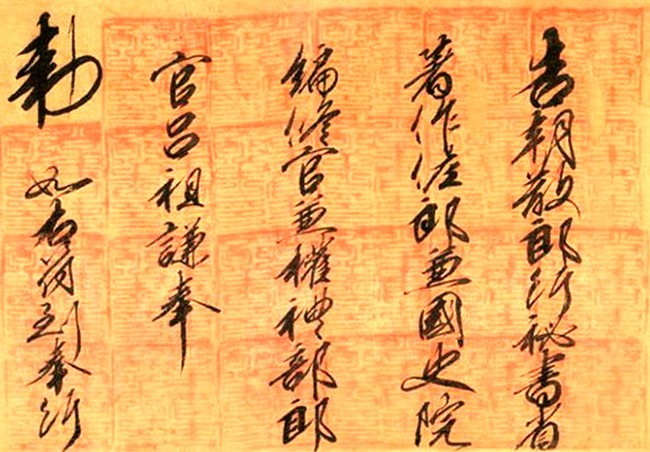 告朝散郎行秘書省
著作佐郎兼國史院
編脩官兼權禮部郎
官呂祖謙奉
勅
如右符到奉行